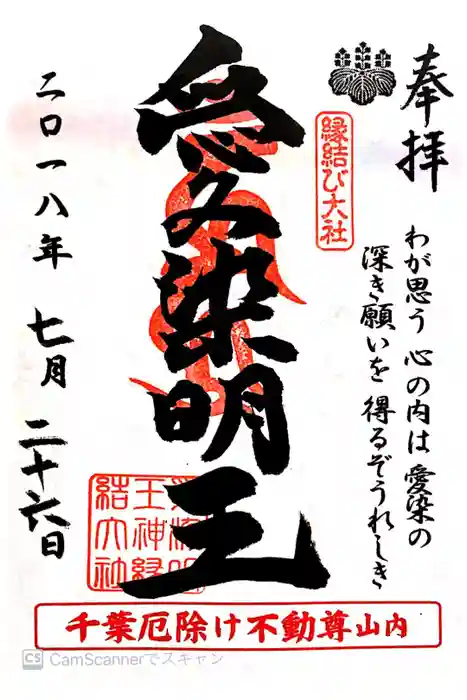 奉拝
わが思う 心の内は 愛染の
深き願いを 得るぞうれしき
縁結び大社
愛染明王
二〇一八年 七月 二十六日
千葉厄除け不動尊山内
CS CamScannerでスキャン